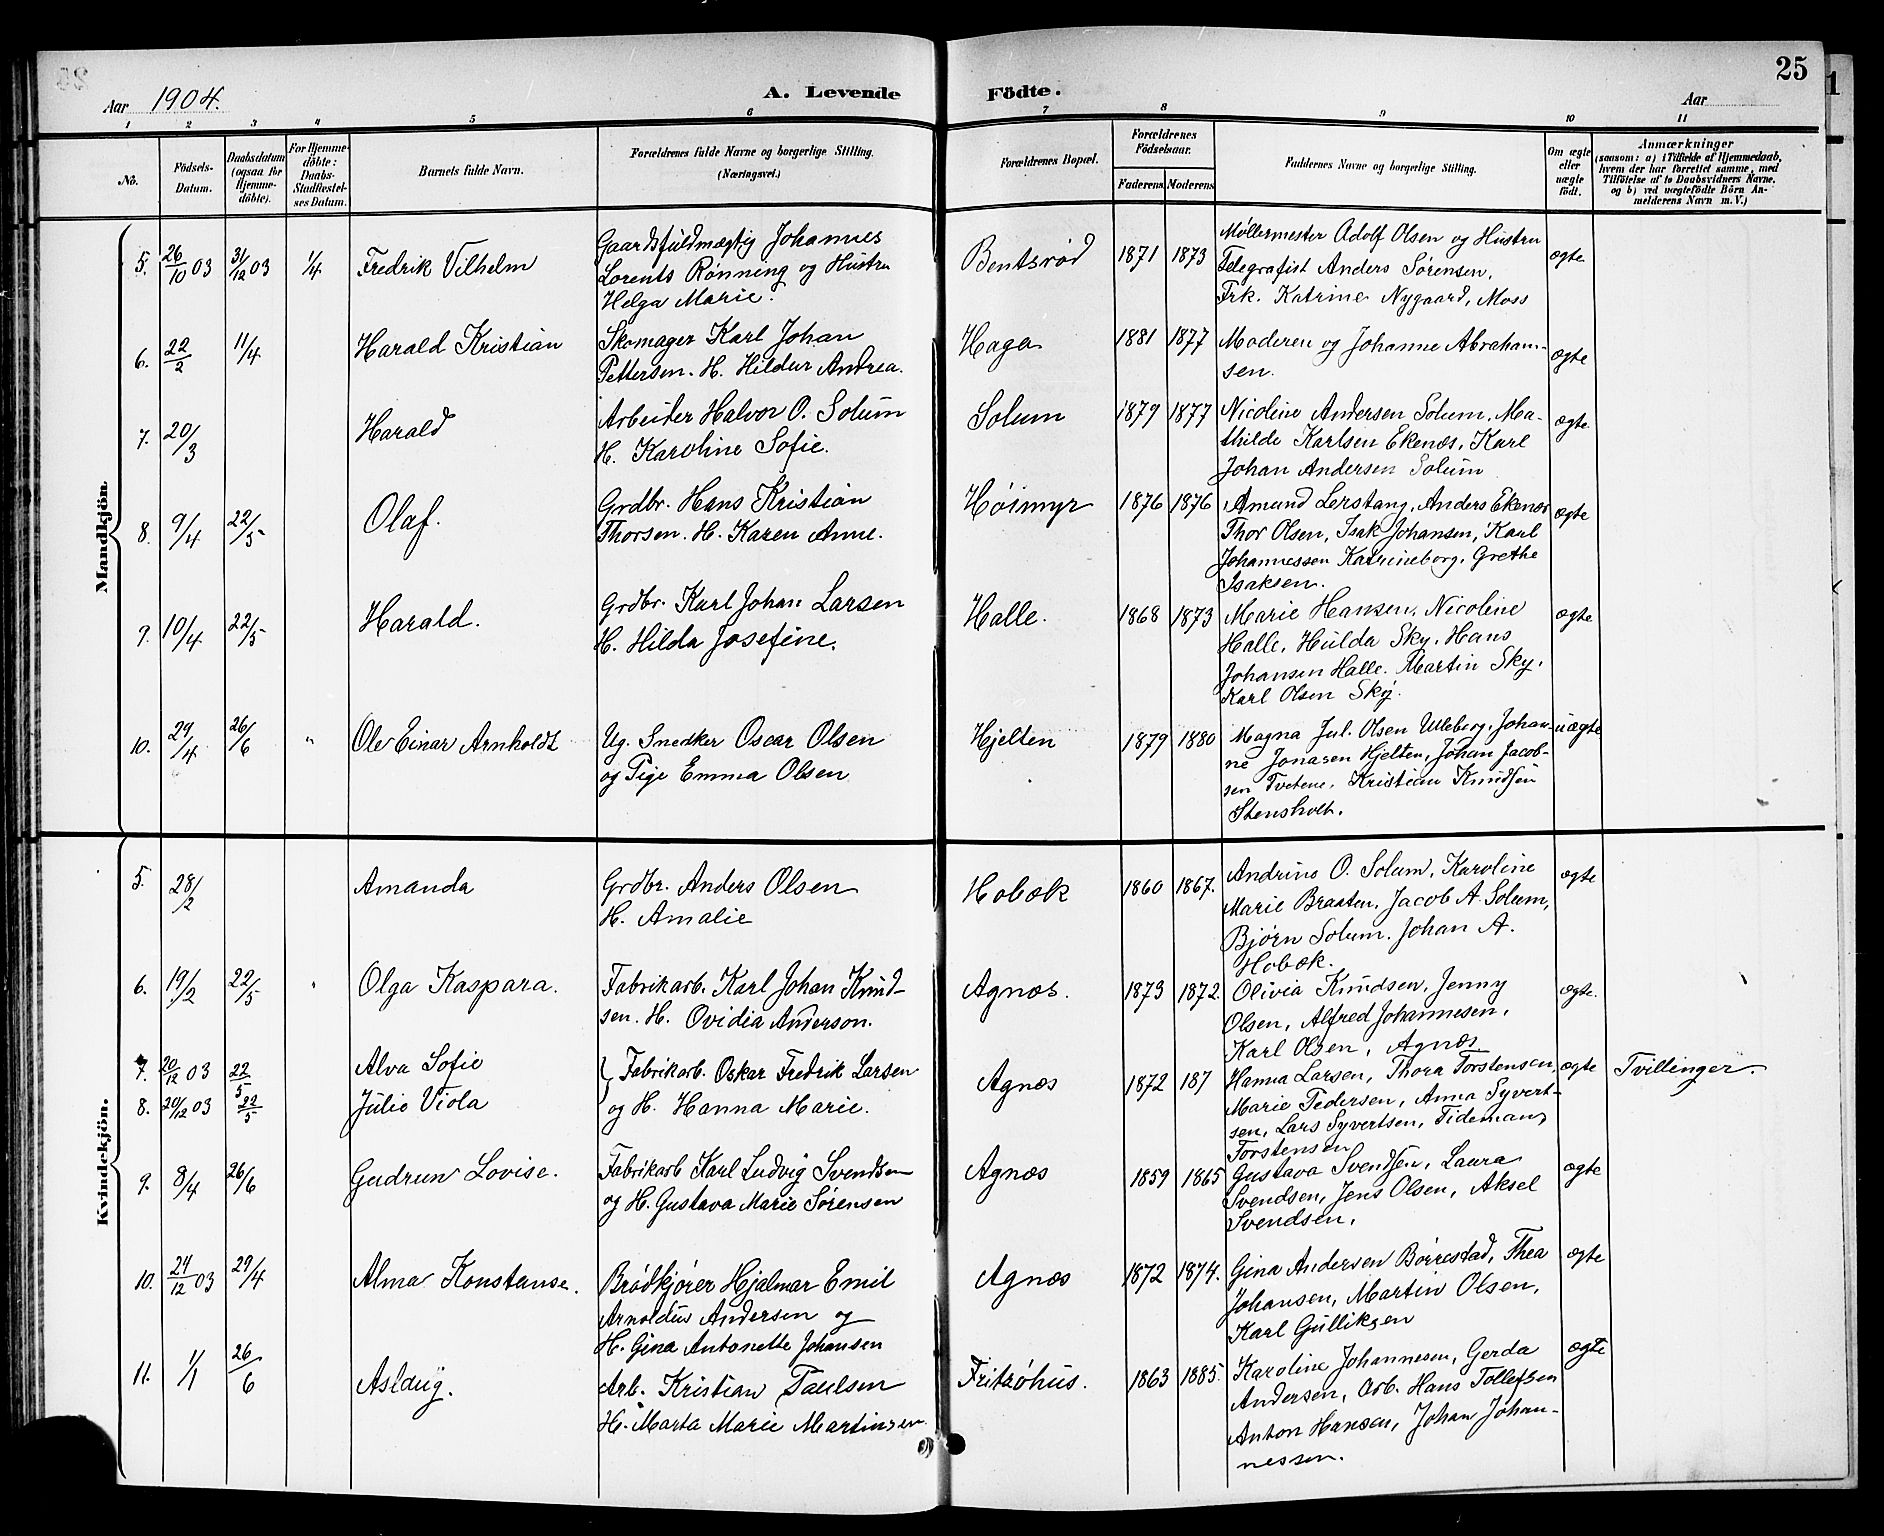 25
Aar 1904.
A. Levende Födte.
Aar
1 2 3 4 5 6 7 8 9 10 11
No.
Födsels-Datum.
Daabsdatum (ogsaa for Hjemme-döbte).
For Hjemme-döbte: Daabs-Stadfæstel-ses Datum.
Barnets fulde Navn.
Forældrenes fulde Navne og borgerlige Stilling. (Næringsvei.)
Forældrenes Bopæl.
Forældrenes Födselsaar.
Faderens Moderens
Faddernes Navne og borgerlige Stilling.
Om ægte eller uægte födt.
Anmærkninger
(saasom: a) i Tilfælde af Hjemmedaab, hvem der har forrettet samme, med Tilföielse af to Daabsvidners Navne, og b) ved uægtefödte Börn An-melderens Navn m. V.)
Mandkjön.
5. 26/10 03 31/12 03 1/4 Fredrik Vilhelm
Gaardsfuldmægtig Johannes
Lorents Rønning og Hustru
Helga Marie.
Bentsrød 1871 1873
Møllermester Adolf Olsen og Hustru
Telegrafist Anders Sørensen,
Frk. Katrine Nygaard, Moss
ægte
6. 22/2 11/4 Harald Kristian
Skomager Karl Johan
Pettersen. H. Hildur Andrea.
Haga 1881 1877
Moderen og Johanne Abraham-
sen.
ægte
7. 20/3 Harald
Arbeider Halvor O. Solum
H. Karoline Sofie.
Solum 1879 1877
Nicoline Andersen Solum, Ma-
thilde Karlsen Ekenæs, Karl
Johan Andersen Solum
ægte
8. 9/4 22/5 Olaf.
Grdbr. Hans Kristian
Thorsen. H. Karen Anne.
Høimyr 1876 1876
Amund Lerstang, Anders Ekenæs
Thor Olsen, Isak Johansen, Karl
Johannessen Katrineborg, Grethe
Isaksen.
ægte
9. 10/4 22/5 Harald.
Grdbr. Karl Johan Larsen
H. Hilda Josefine.
Halle. 1868 1873
Marie Hansen, Nicoline
Halle, Hulda Sky, Hans
Johansen Halle. Martin Sky.
Karl Olsen Sky.
ægte
10. 29/4 26/6 " Ole Einar Arnholdt
Ug. Snedker Oscar Olsen
og Pige Emma Olsen
Hjelten 1879 1880
Magna Jul. Olsen Ulleberg, Johan-
ne Jonasen Hjelten, Johan Jacob-
sen Tvetene, Kristian Knudsen
Stensholt.
uægte
Kvindekjön.
5. 28/2 Amanda
Grdbr. Anders Olsen
H. Amalie
Hobæk 1860 1867.
Andrins O. Solum, Karoline
Marie Braaten, Jacob A. Solum,
Bjørn Solum. Johan A.
Hobæk.
ægte
6. 19/2 22/5 Olga Kaspara.
Fabrikarb. Karl Johan Knud-
sen. H. Ovidia Anderson.
Agnæs. 1873 1872.
Olivia Knudsen, Jenny
Olsen, Alfred Johannesen,
Karl Olsen, Agnæs
ægte.
7. 20/12 03 22/5 Alva Sofie
8. 20/12 03 22/5 Julie Viola
Fabrikarb. Oskar Fredrik Larsen
og H. Hanna Marie.
Agnæs 1872 187
Hanna Larsen, Thora Torstensen,
Marie Pedersen, Anna Syvert-
sen, Lars Syvertsen, Tideman
Torstensen
ægte Tvillinger.
9. 8/4 26/6 Gudrun Lovise.
Fabrikarb Karl Ludvig Svendsen
og H. Gustava Marie Sørensen
Agnæs 1859 1865
Gustava Svendsen, Laura
Svendsen, Jens Olsen, Aksel
Svendsen.
ægte
10. 24/12 03 29/4 Alma Konstanse.
Brødkjører Hjalmar Emil
Arnoldus Andersen og
H. Gina Antonette Johansen
Agnæs 1872 1874.
Gina Andersen Børrestad, Thea
Johansen, Martin Olsen,
Karl Gulliksen
ægte
11. 1/1 26/6 Aslaug.
Arb. Kristian Paulsen
H. Marta Marie Martinsen
Fritzøhus. 1863 1885.
Karoline Johannesen, Gerda
Andersen, Arb. Hans Tollefsen
Anton Hansen, Johan Johan-
nessen.
ægte